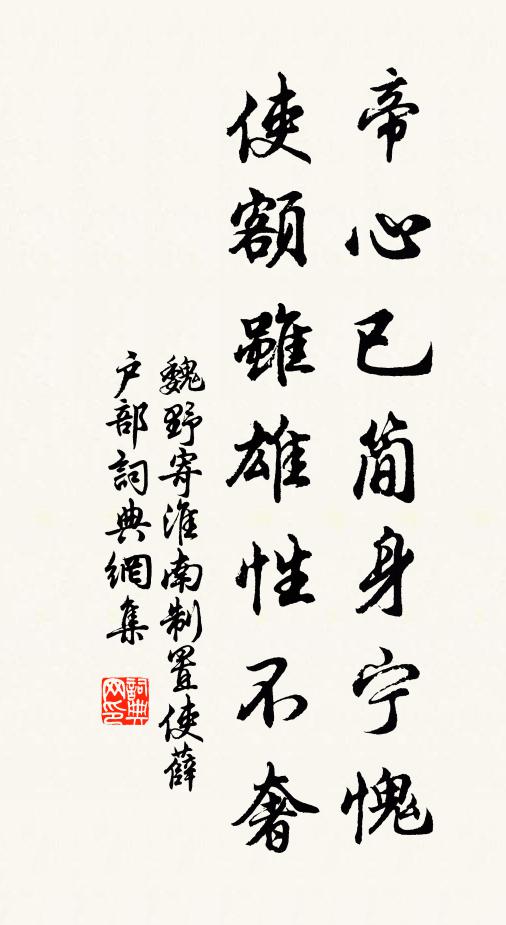 帝心已简身宁愧
使額雖雄性不奢
魏野寄淮南制置使薛
户部詞典網集
詞典网印